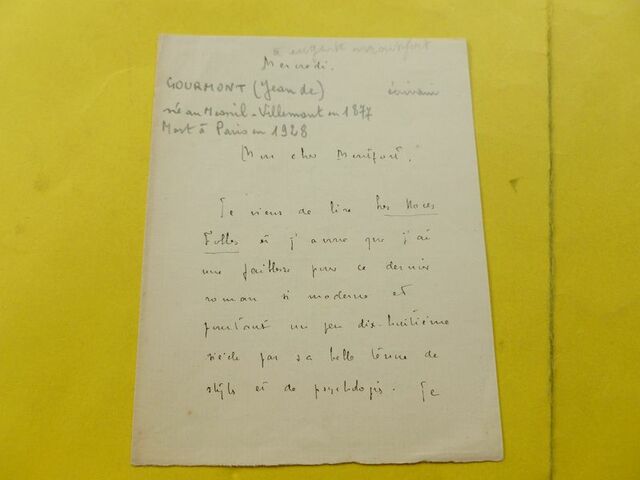 à eugène montfort
Mercredi.
GOURMONT (Jean de) écrivain
né au Mesnil-Villemont en 1877
Mort à Paris en 1928
Mon cher Montfort,
Je viens de lire Les Noces
Folles et j'avoue que j'ai
une faiblesse pour ce dernier
roman si moderne et
pourtant un peu dix-huitième
siècle par sa belle tenue de
style et de psychologie. Je